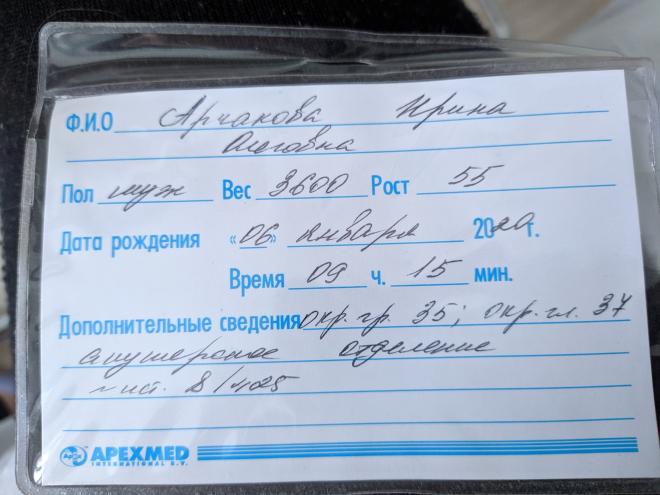 Ф.И.О Арчакова Ирина
Олеговна
Пол муж Вес 3600 Рост 55
Дата рождения «06» января 2020 г.
Время 09 ч. 15 мин.
Дополнительные сведения окр. гр. 35; окр. гл. 37
акушерское отделение
№ ист. 8/1425
APEXMED
INTERNATIONAL B.V.